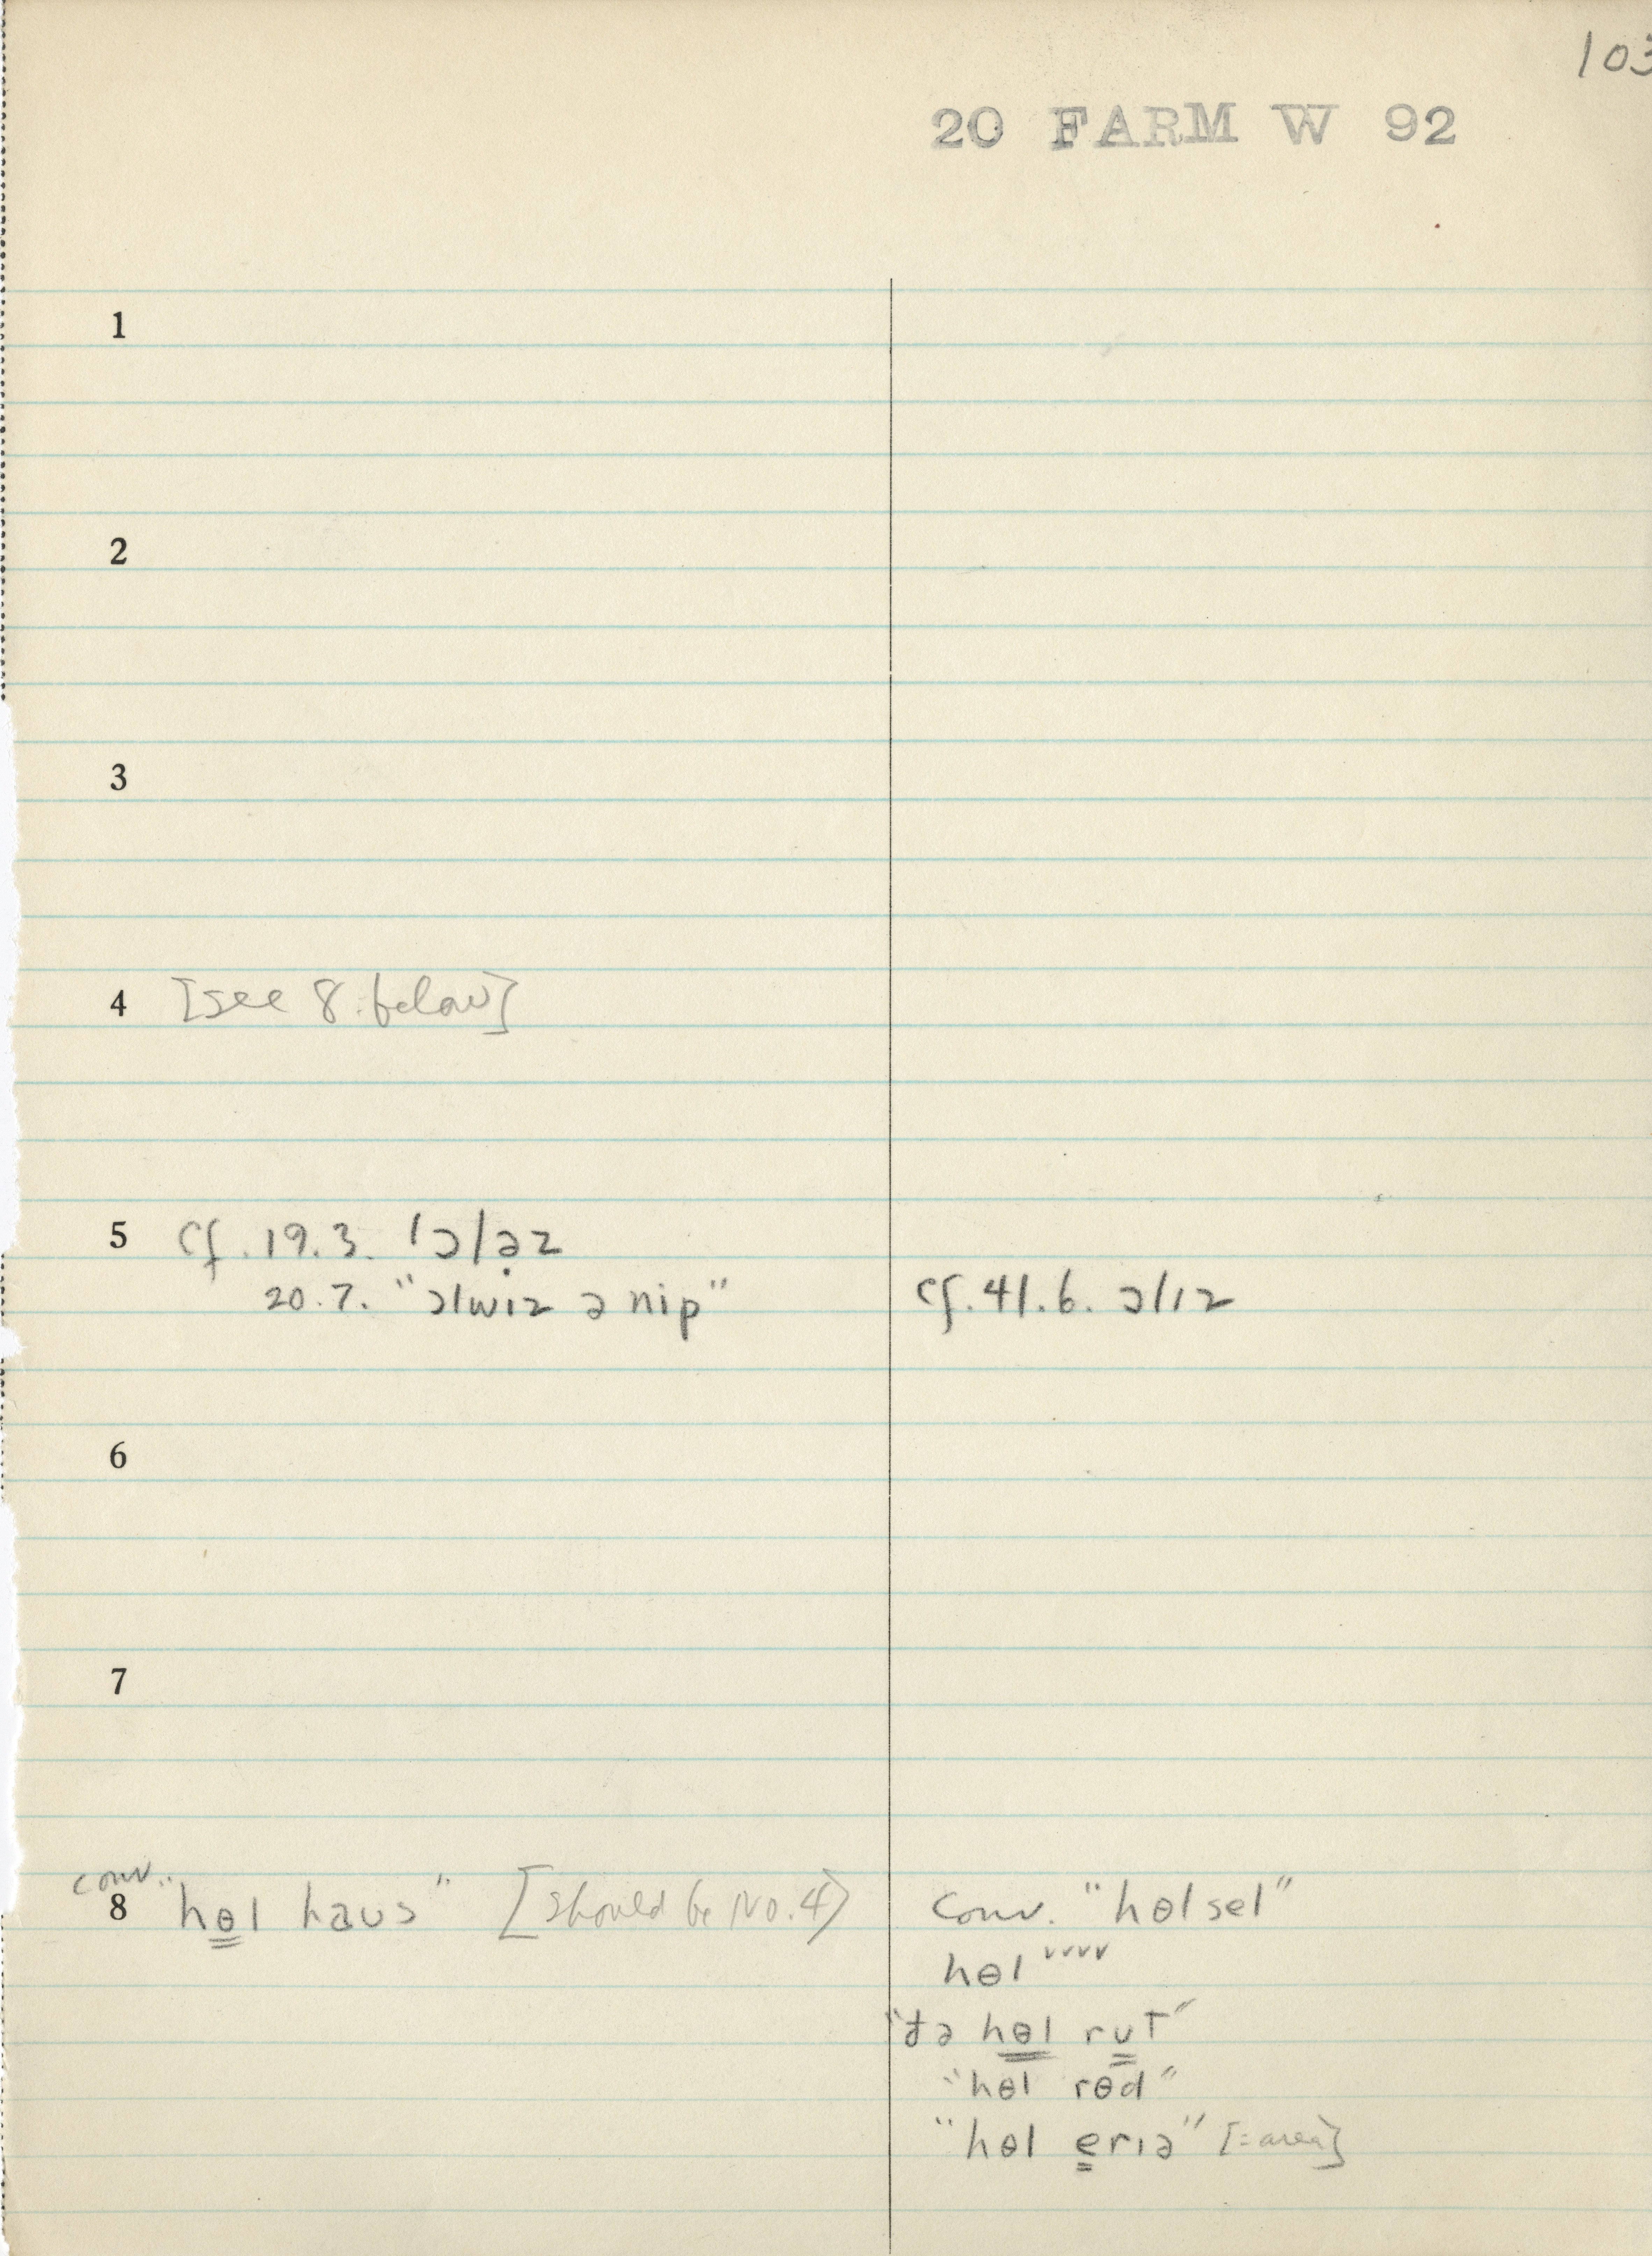 103
20 FARM W 92
1
2
3
4 [see 8 below]
5 cf. 19.3. 'ɔlə̣z
20.7. "ɔlwɪz ə nip"
cf. 41.6. ɔlɪz
6
7
conv.
8 "hɵl haʊs" [should be No. 4]
conv. "hɵlsel"
hɵl ˇˇˇˇ
"đə hɵl rʊt"
"hɵl rɵd"
"hɵl erɪə" [=area]